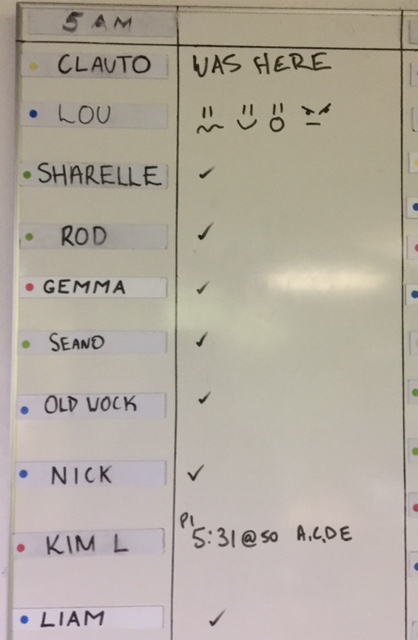 5 AM
CLAUTO WAS HERE
LOU
SHARELLE ✓
ROD ✓
GEMMA ✓
SEANO ✓
OLD WOCK ✓
NICK ✓
KIM L P1 5:31@50 A,C,DE
LIAM ✓